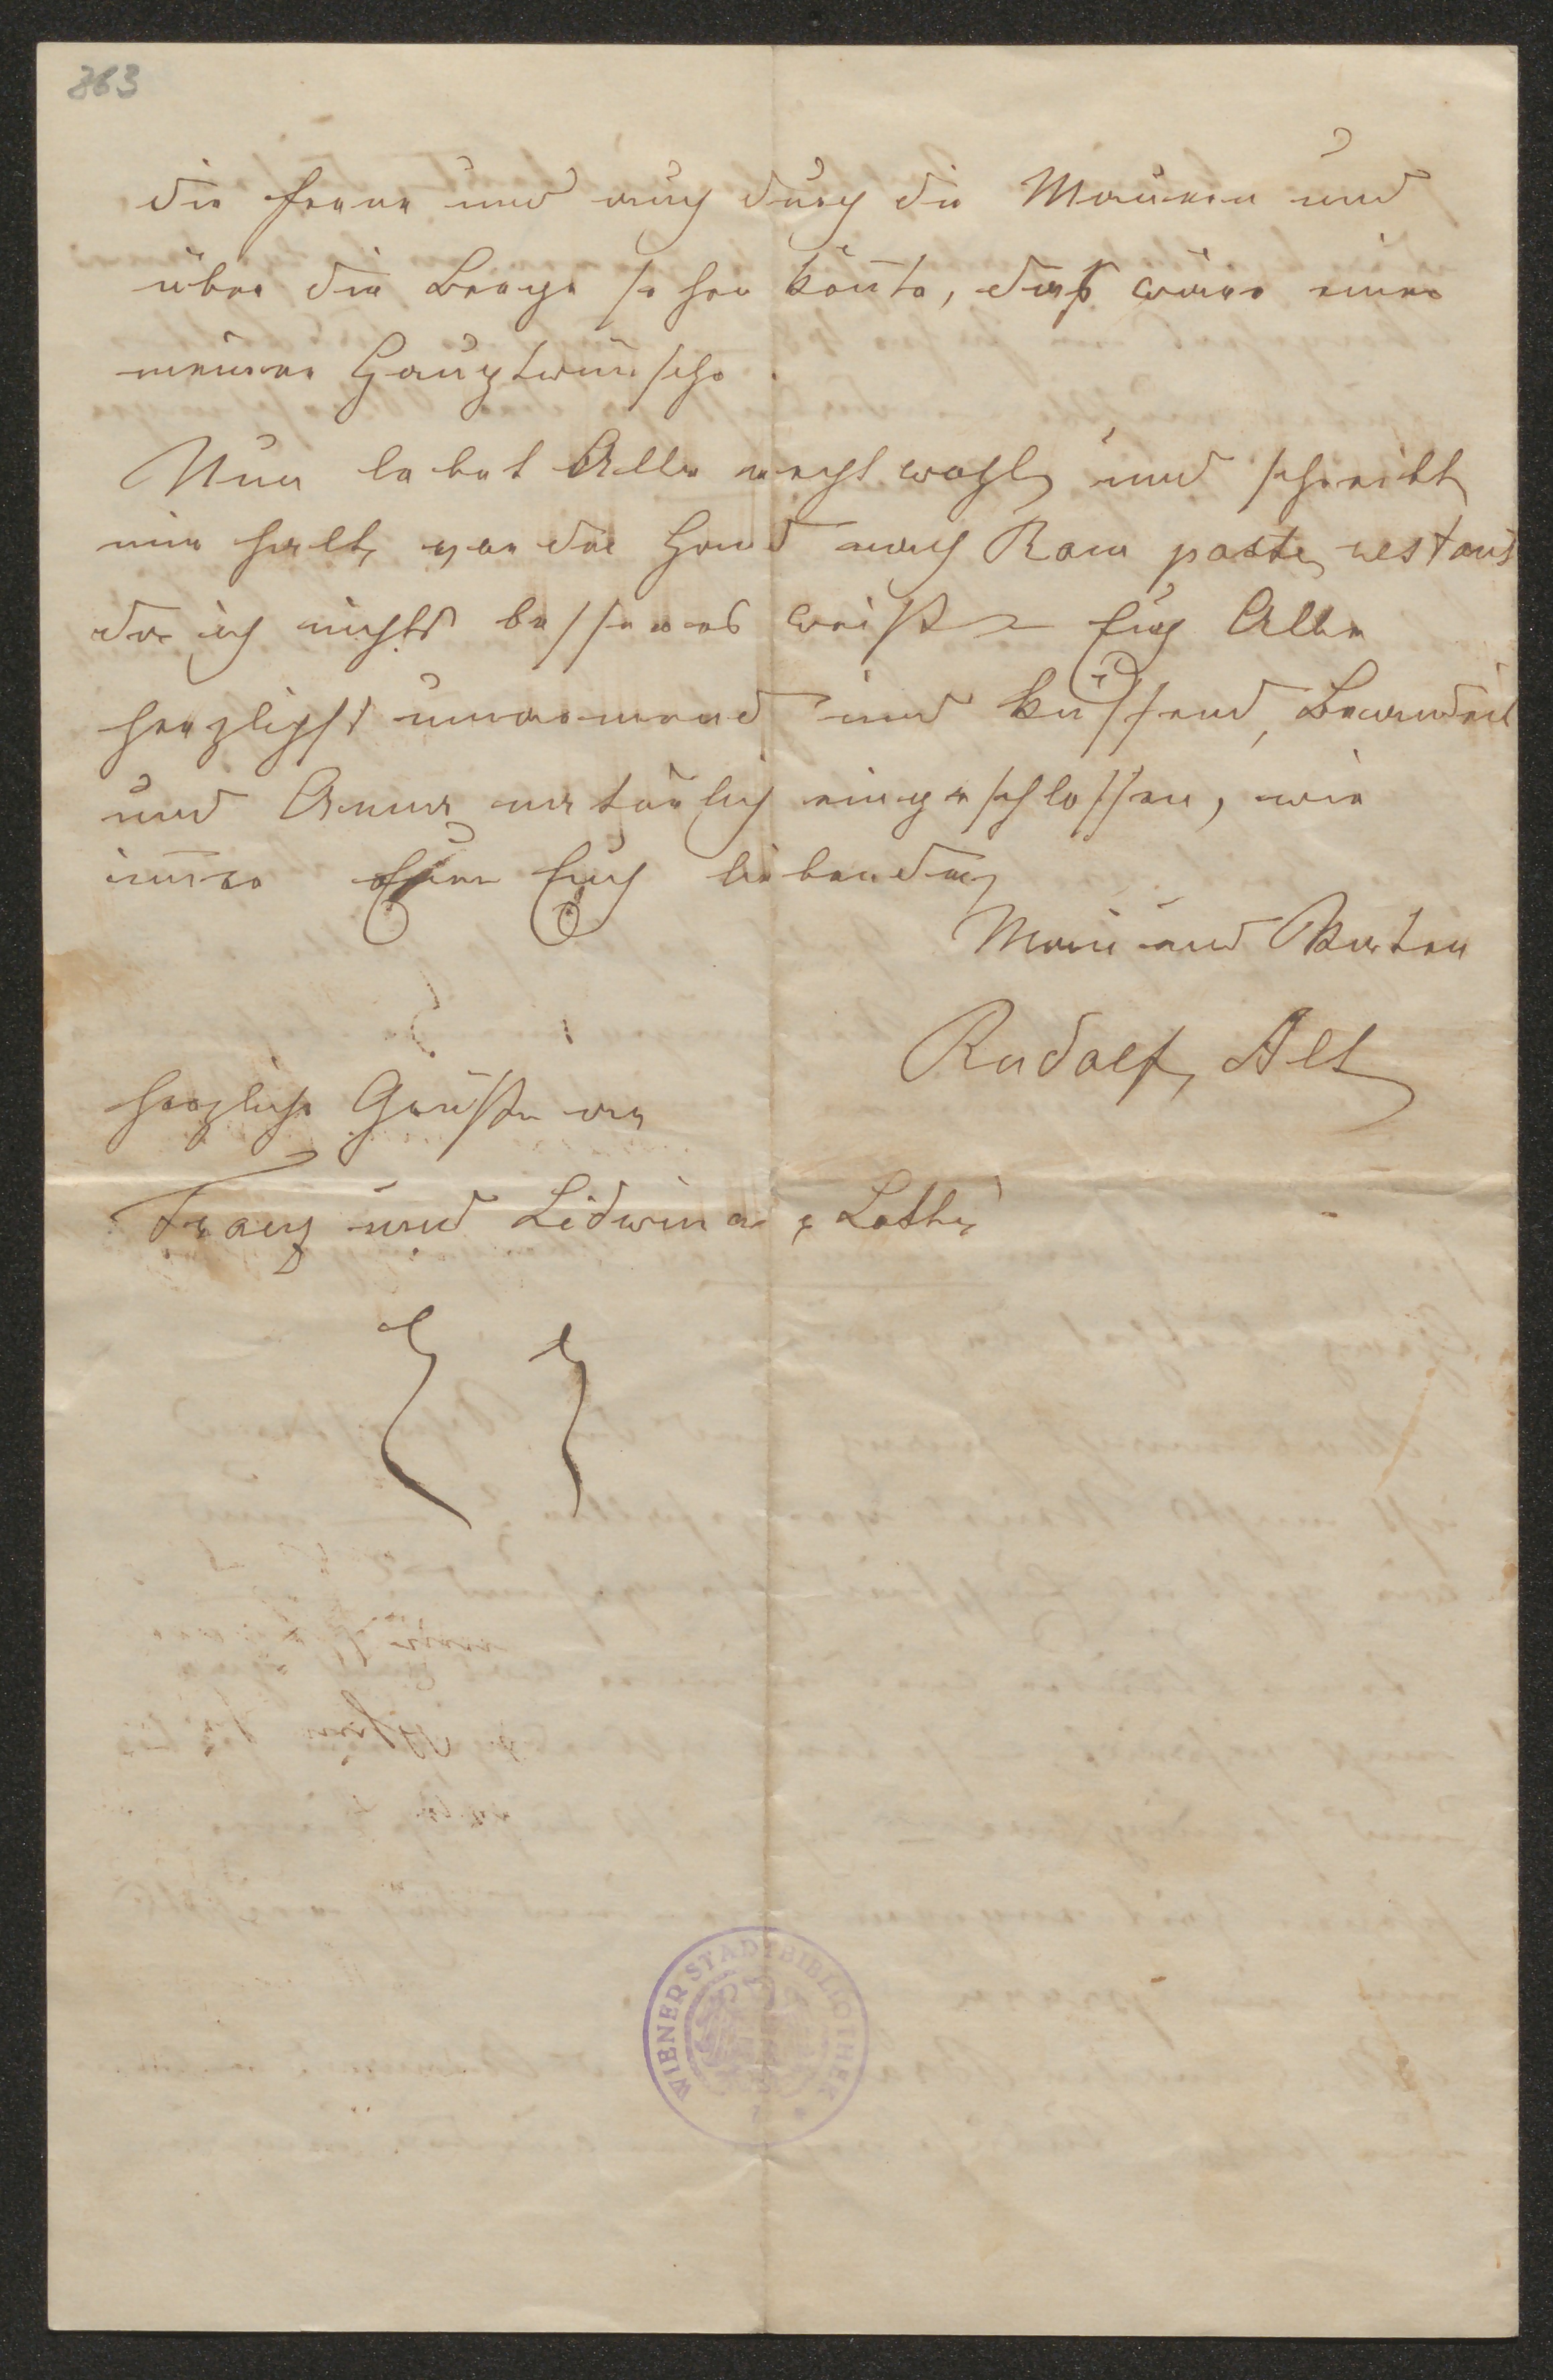 363
die Ferne und auch durch die Mauern und
über die Berge sehen kön̅te, das wäre einer
meiner Hauptwünsche.
Nun lebet Alle recht wohl und schreibt
mir halt, vor der Hand nach Rom poste restant
da ich nichts besseres weiß – Euch Alle
herzlichst umarmend und küssend,
und Anna natürlich eingeschlossen, wie
im̅er Euer Euch liebender
Mann und Vater
Rudolf Alt
herzliche Grüße an
Franz und Lidwina, Lothi
WIENER STADTBIBLIOTHEK